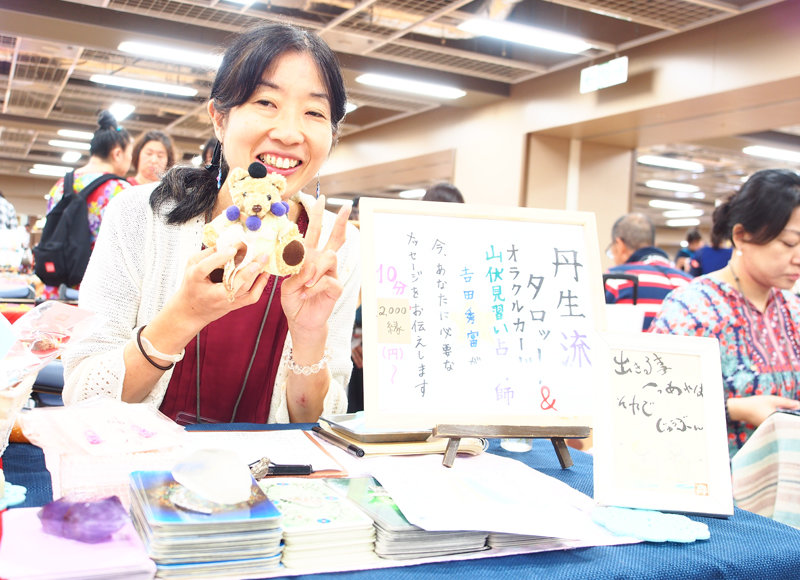 丹生流
タロット
&
オラクルカード
山伏見習い占い師
吉田秀富が
今、あなたに必要な
メッセージをお伝えします
10分
2,000縁
(円)
出きる事
それで